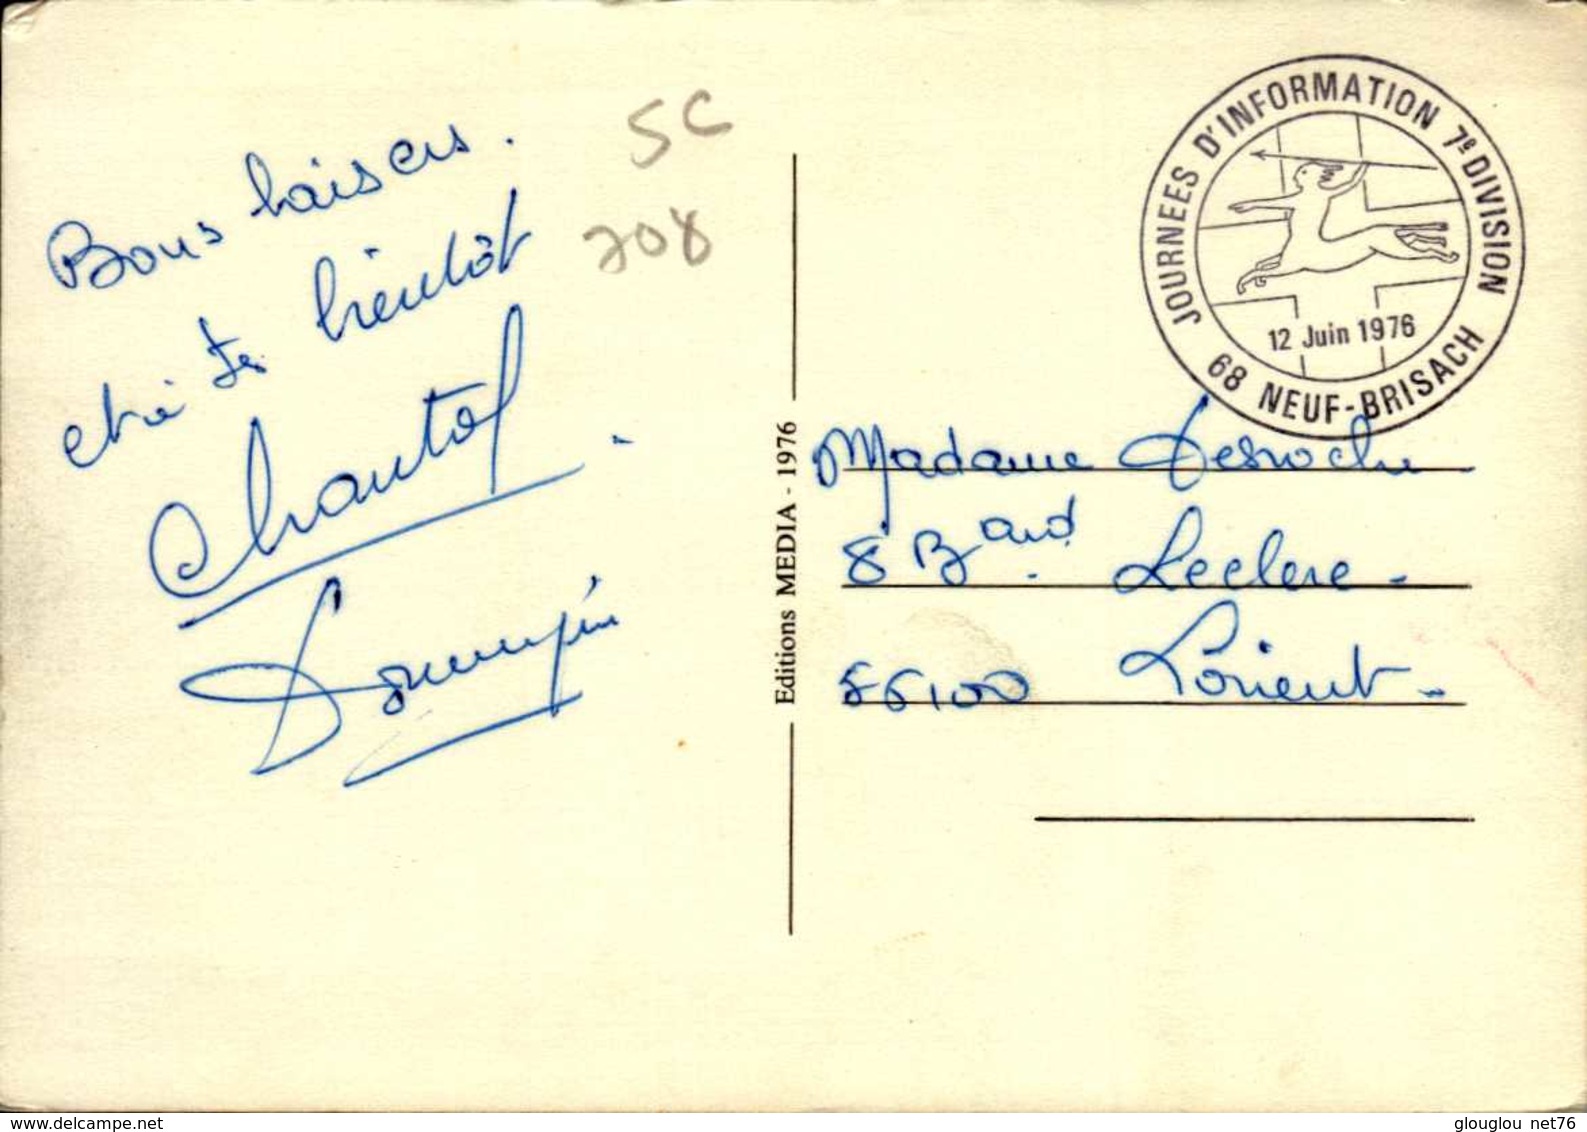 Bons baisers.
et à bientôt
Chantal
5C
708
Editions MEDIA - 1976
JOURNEES D'INFORMATION 7e DIVISION
12 Juin 1976
68 NEUF-BRISACH
Madame
8 Bard. Leclerc.
56100 Lorient.
www.delcampe.net
glouglou net76